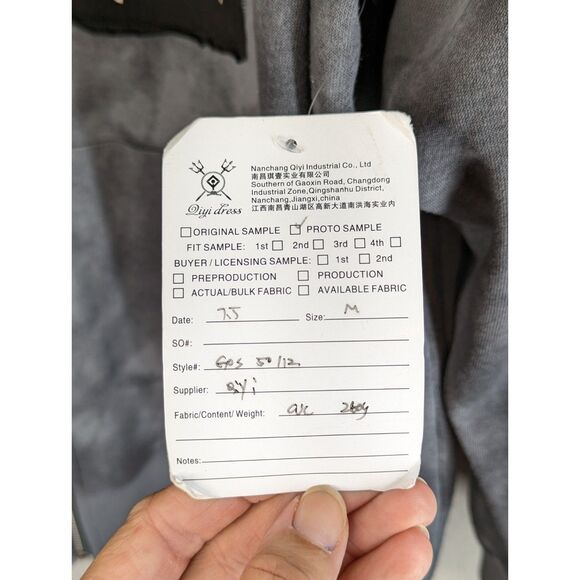 Nanchang Qiyi Industrial Co., Ltd
南昌琪壹实业有限公司
Southern of Gaoxin Road, Changdong
Industrial Zone, Qingshanhu District,
Nanchang,Jiangxi,china
江西南昌青山湖区高新大道南洪海实业内
Qiyi dress
ORIGINAL SAMPLE PROTO SAMPLE
FIT SAMPLE: 1st 2nd 3rd 4th
BUYER / LICENSING SAMPLE: 1st 2nd
PREPRODUCTION PRODUCTION
ACTUAL/BULK FABRIC AVAILABLE FABRIC
Date: 7.5 Size: M
SO#:
Style#: 50/12
Supplier: Qiyi
Fabric/Content/ Weight:
Notes: